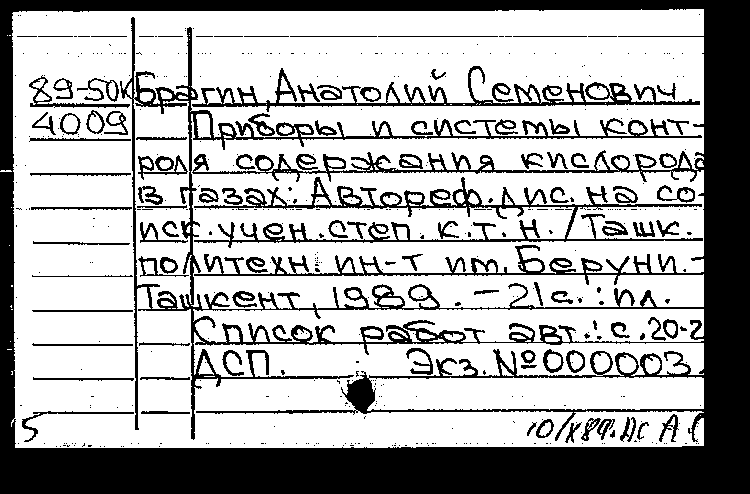 89-50к Брагин, Анатолий Семенович.
4009 Приборы и системы конт-
роля содержания кислорода
в газах: Автореф. дис. на со-
иск. учен. степ. к. т. н. / Ташк.
политехн. ин-т им. Беруни. -
Ташкент, 1989. - 21 с. : ил.
Список работ авт.: с. 20-2
ДСП. Экз. № 000003.
5